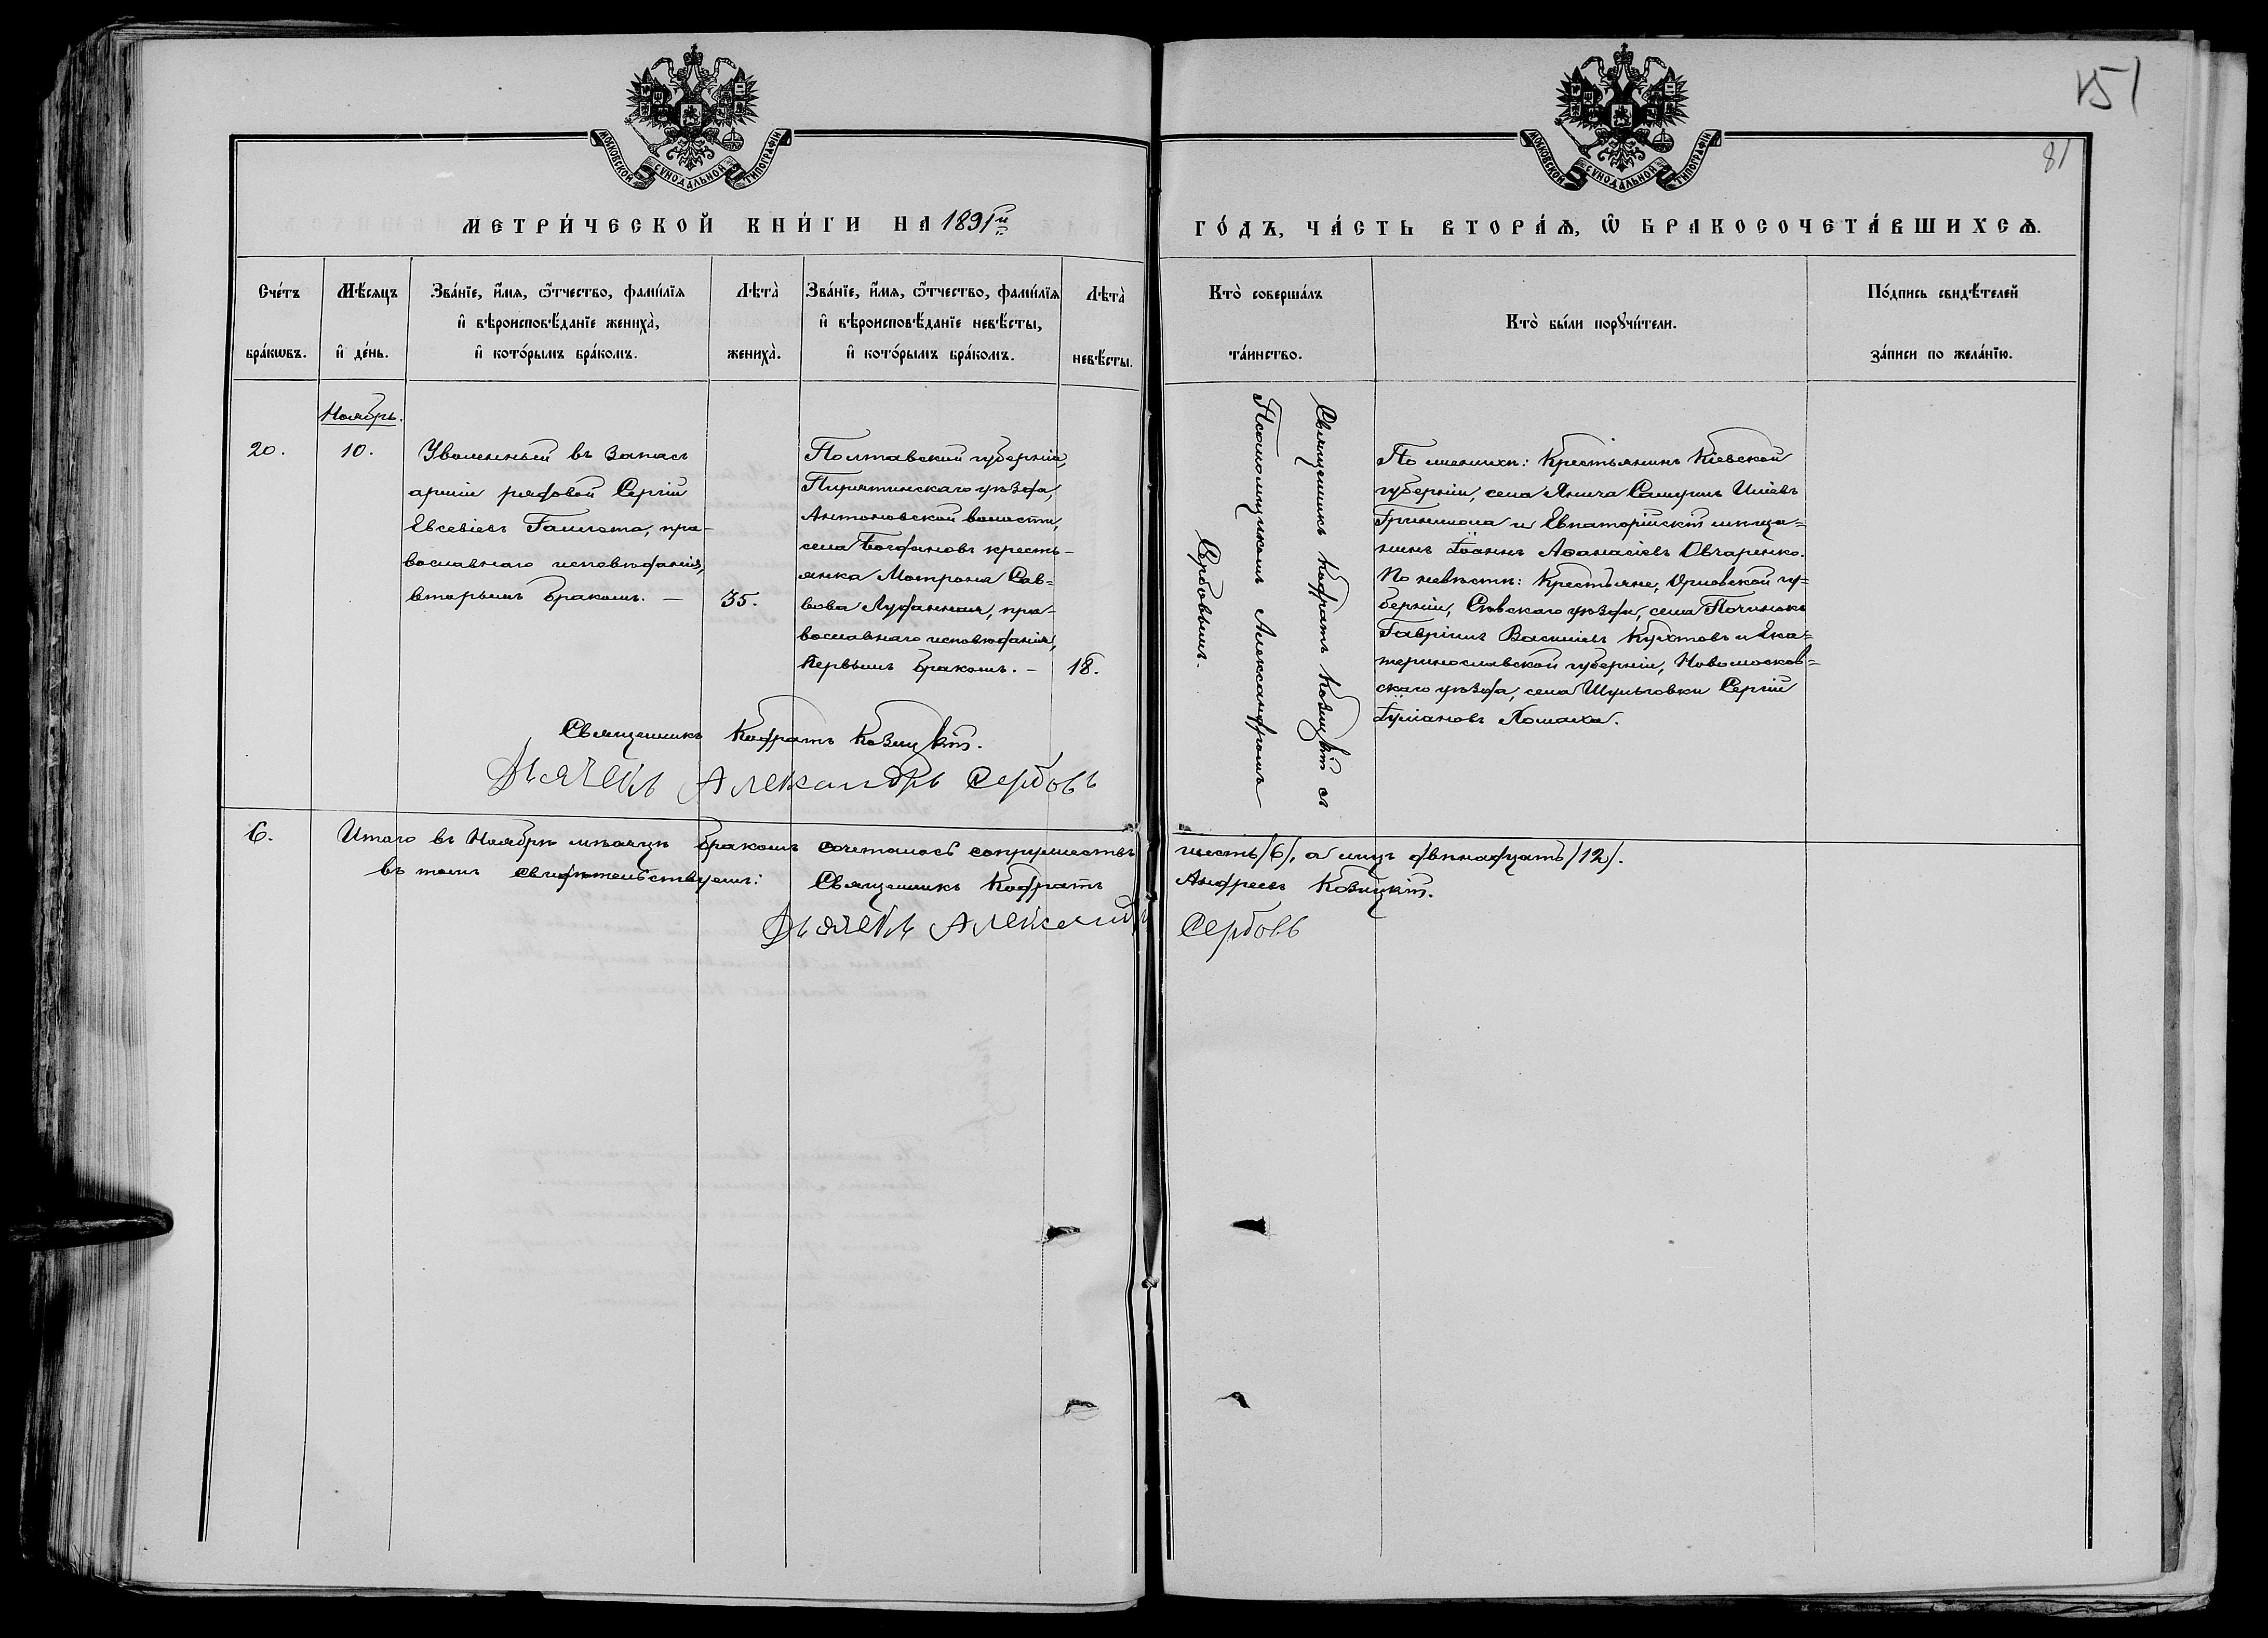 151
81
МОСКОВСКОЙ СѴНОДАЛЬНОЙ ТИПОГРАФІИ
МОСКОВСКОЙ СѴНОДАЛЬНОЙ ТИПОГРАФІИ
МЕТРИ́ЧЕСКОЙ КНИ́ГИ НА 1891й
ГО́ДЪ, ЧА́СТЬ ВТОРА́Ѧ, Ѡ҆ БРАКОСОЧЕТА́ВШИХСѦ.
Сче́тъ
бра́кѡвъ.
Мѣ́сѧцъ
и҆ де́нь.
Зва́нїе, и҆́мѧ, ѻ҆́тчество, фами́лїѧ
и҆ вѣроисповѣ́данїе жениха̀,
и҆ кото́рымъ бра́комъ.
Лѣта̀
жениха̀.
Зва́нїе, и҆́мѧ, ѻ҆́тчество, фами́лїѧ
и҆ вѣроисповѣ́данїе невѣ́сты,
и҆ кото́рымъ бра́комъ.
Лѣта̀
невѣ́сты.
Кто̀ соверша́лъ
та́инство.
Кто̀ бы́ли порꙋчи́тели.
По́дпись свидѣ́телей
за́писи по жела́нїю.
Ноябрь.
20.
10.
Уволенный въ запасъ
арміи рядовой Сергій
Евсевіевъ Гамота, пра-
вославнаго исповѣданія,
вторымъ бракомъ. —
35.
Полтавской губерніи,
Пирятинскаго уѣзда,
Антоновской волости,
села Богдановъ кресть-
янка Матрона Сав-
вова Луданная, пра-
вославнаго исповѣданія,
первымъ бракомъ. —
18.
Священникъ Кодратъ Козицкій съ
Псаломщикомъ Александромъ
Сербовымъ.
По женихѣ: Крестьянинъ Кіевской
губерніи, села Янича Самуилъ Иліевъ
и Евпаторійскій мѣща=
нинъ Іоаннъ Аѳанасіевъ Овчаренко.
По невѣстѣ: Крестьяне, Орловской гу=
берніи, Сѣвскаго уѣзда, села Починокъ
Гавріилъ Василіевъ Кухтовъ и Ека=
теринославской губерніи, Новомосков=
скаго уѣзда, села Шульговки Сергій
Іуліановъ Ломака.
Священникъ Кодратъ Козицкій.
Дьячекъ Александръ Сербовъ
6.
Итого въ Ноябрѣ мѣсяцѣ бракомъ сочеталось супружествъ шесть /6/, а лицъ двѣнадцать /12/.
въ томъ свидѣтельствуемъ: Священникъ Кодратъ Андреевъ Козицкій.
Дьячекъ Александръ Сербовъ